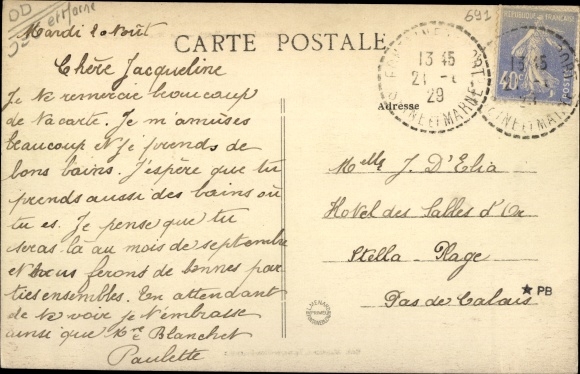 OD
S. et Marne
691
Mardi 20 Août
CARTE POSTALE
REPUBLIQUE FRANÇAISE
40c
POSTES
13 45
21 - 8
29
SEINE ET MARNE
Adresse
Chère Jacqueline
Je te remercie beaucoup
de ta carte. Je m'amuses
beaucoup et je prends de
bons bains. J'espère que tu
prends aussi des bains où
tu es. Je pense que tu
seras là au mois de septembre
et nous ferons de bonnes par
ties ensembles. En attendant
de te voir je t'embrasse
ainsi que Blanchet
Paulette
Melle J. D'Elia
Hotel des Salles d'Or
Stella Plage
Pas de Calais
★ PB